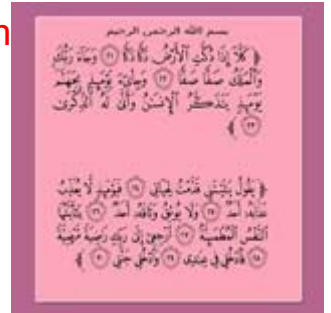 n
بسم الله الرحمن الرحيم
﴿ كَلَّآ إِذَا دُكَّتِ ٱلْأَرْضُ دَكًّا دَكًّا ۝٢١ وَجَآءَ رَبُّكَ
وَٱلْمَلَكُ صَفًّا صَفًّا ۝٢٢ وَجِا۟ىٓءَ يَوْمَئِذٍۭ بِجَهَنَّمَ
يَوْمَئِذٍ يَتَذَكَّرُ ٱلْإِنسَٰنُ وَأَنَّىٰ لَهُ ٱلذِّكْرَىٰ
۝٢٣ ﴾
﴿ يَقُولُ يَٰلَيْتَنِى قَدَّمْتُ لِحَيَاتِى ۝٢٤ فَيَوْمَئِذٍ لَّا يُعَذِّبُ
عَذَابَهُۥٓ أَحَدٌ ۝٢٥ وَلَا يُوثِقُ وَثَاقَهُۥٓ أَحَدٌ ۝٢٦ يَٰٓأَيَّتُهَا
ٱلنَّفْسُ ٱلْمُطْمَئِنَّةُ ۝٢٧ ٱرْجِعِىٓ إِلَىٰ رَبِّكِ رَاضِيَةً مَّرْضِيَّةً
۝٢٨ فَٱدْخُلِى فِى عِبَٰدِى ۝٢٩ وَٱدْخُلِى جَنَّتِى ۝٣٠ ﴾